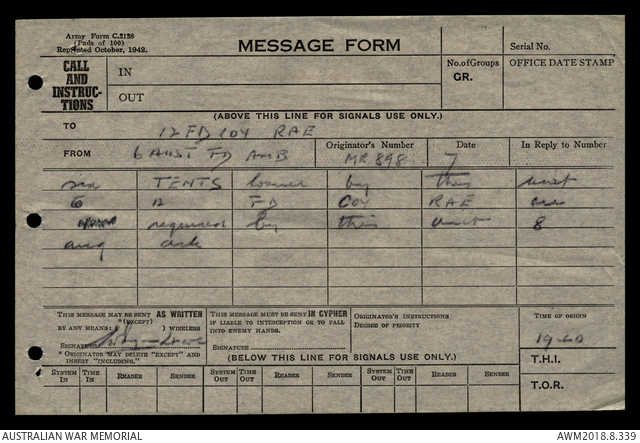 Army Form C.2128
(Pads of 100)
Reprinted October, 1942.
MESSAGE FORM
Serial No.
CALL AND INSTRUC-TIONS
IN
OUT
No. of Groups
GR.
OFFICE DATE STAMP
(ABOVE THIS LINE FOR SIGNALS USE ONLY.)
TO 12 FD COY RAE
FROM 6 AUST FD AMB
Originator's Number MR 898
Date 7
In Reply to Number
TENTS loaned by this unit
6 12 FD COY RAE are
required by this unit 8
aug
THIS MESSAGE MAY BE SENT AS WRITTEN
*(EXCEPT)
BY ANY MEANS: ) WIRELESS
SIGNATURE
* ORIGINATOR MAY DELETE "EXCEPT" AND
INSERT "INCLUDING."
THIS MESSAGE MUST BE SENT IN CYPHER
IF LIABLE TO INTERCEPTION OR TO FALL
INTO ENEMY HANDS.
SIGNATURE
ORIGINATOR'S INSTRUCTIONS
DEGREE OF PRIORITY
TIME OF ORIGIN
T.H.I.
T.O.R.
(BELOW THIS LINE FOR SIGNALS USE ONLY.)
SYSTEM IN TIME IN READER SENDER SYSTEM OUT TIME OUT READER SENDER SYSTEM OUT TIME OUT READER SENDER
AUSTRALIAN WAR MEMORIAL
AWM2018.8.339